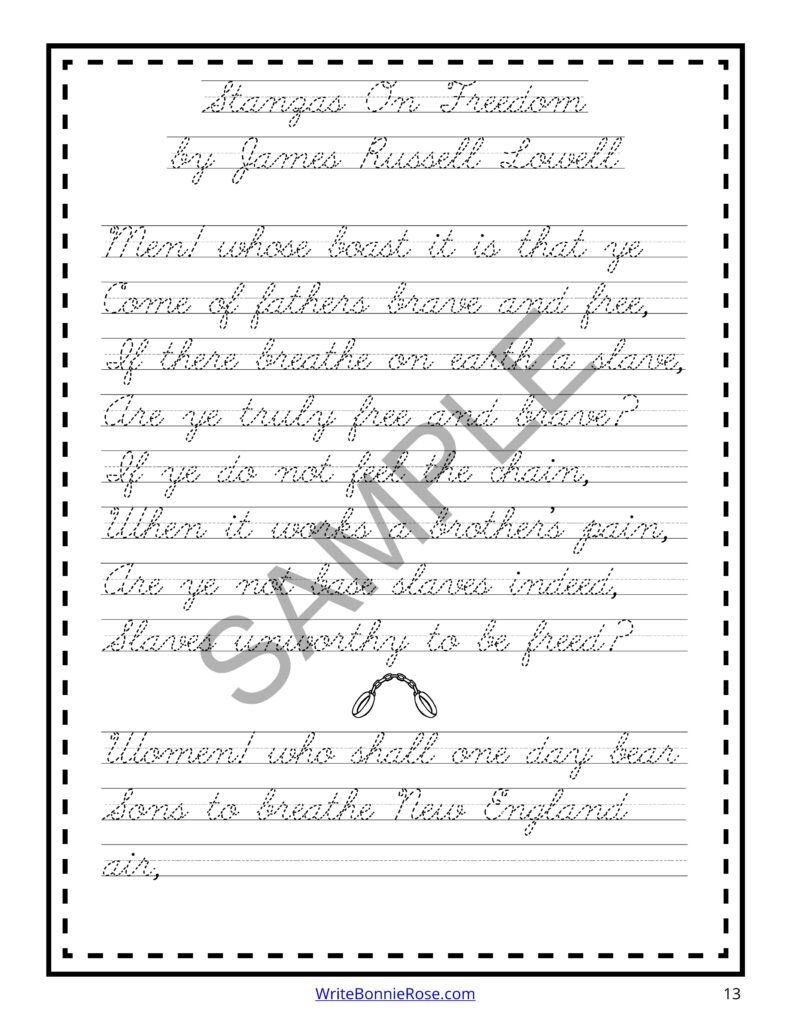 Stanzas On Freedom
by James Russell Lowell
Men! whose boast it is that ye
Come of fathers brave and free,
If there breathe on earth a slave,
Are ye truly free and brave?
If ye do not feel the chain,
When it works a brother's pain,
Are ye not base slaves indeed,
Slaves unworthy to be freed?
Women! who shall one day bear
Sons to breathe New England
air,
SAMPLE
WriteBonnieRose.com
13